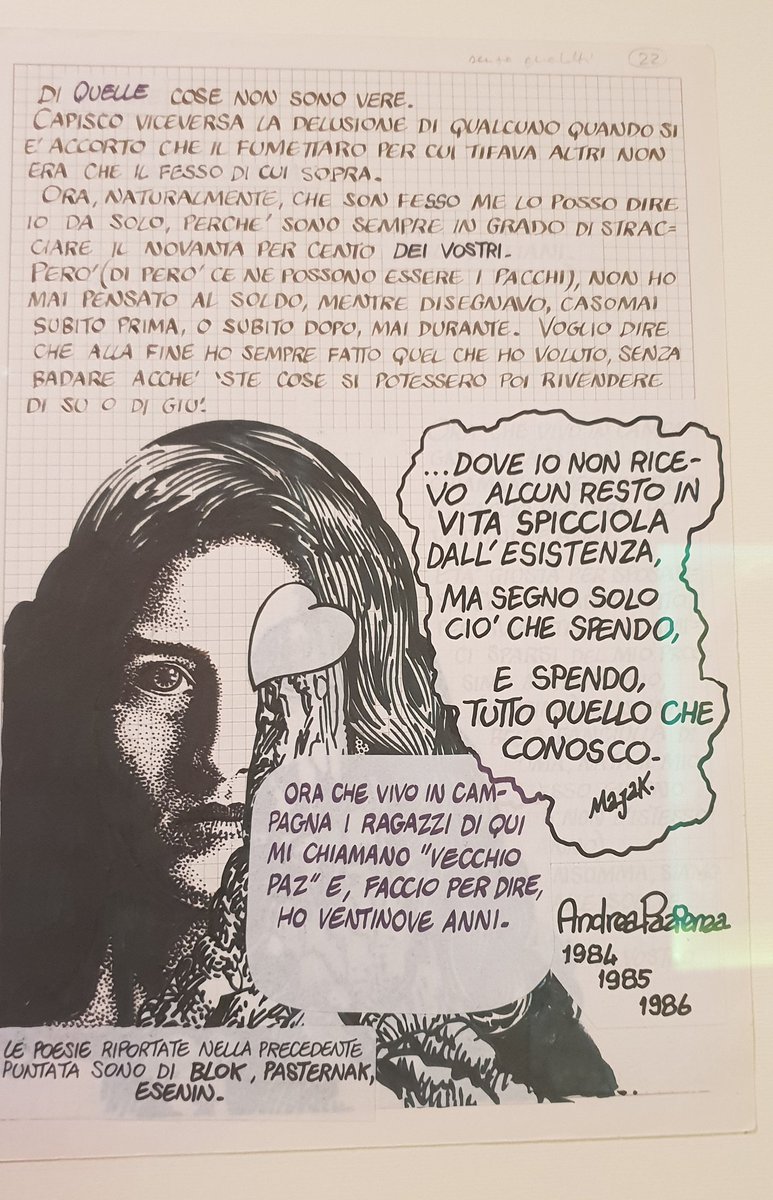 22
DI QUELLE COSE NON SONO VERE.
CAPISCO VICEVERSA LA DELUSIONE DI QUALCUNO QUANDO SI
E' ACCORTO CHE IL FUMETTARO PER CUI TIFAVA ALTRI NON
ERA CHE IL FESSO DI CUI SOPRA.
ORA, NATURALMENTE, CHE SON FESSO ME LO POSSO DIRE
IO DA SOLO, PERCHE' SONO SEMPRE IN GRADO DI STRAC=
CIARE IL NOVANTA PER CENTO DEI VOSTRI.
PERO' (DI PERO' CE NE POSSONO ESSERE I PACCHI), NON HO
MAI PENSATO AL SOLDO, MENTRE DISEGNAVO, CASOMAI
SUBITO PRIMA, O SUBITO DOPO, MAI DURANTE. VOGLIO DIRE
CHE ALLA FINE HO SEMPRE FATTO QUEL CHE HO VOLUTO, SENZA
BADARE ACCHE' 'STE COSE SI POTESSERO POI RIVENDERE
DI SU O DI GIU'.
...DOVE IO NON RICE-
VO ALCUN RESTO IN
VITA SPICCIOLA
DALL'ESISTENZA,
MA SEGNO SOLO
CIO' CHE SPENDO,
E SPENDO,
TUTTO QUELLO CHE
CONOSCO.
Majak.
ORA CHE VIVO IN CAM-
PAGNA I RAGAZZI DI QUI
MI CHIAMANO "VECCHIO
PAZ" E, FACCIO PER DIRE,
HO VENTINOVE ANNI.
Andrea Pazienza
1984
1985
1986
LE POESIE RIPORTATE NELLA PRECEDENTE
PUNTATA SONO DI BLOK, PASTERNAK,
ESENIN.